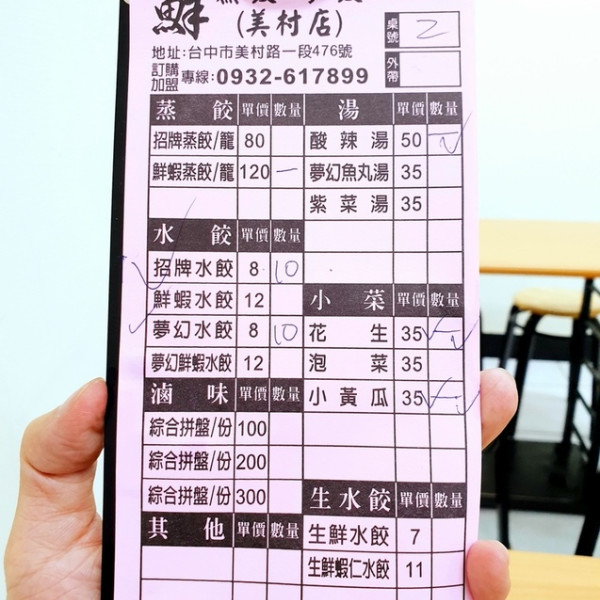 鮮
(美村店)
桌號 2
地址:台中市美村路一段476號
訂購加盟 專線:0932-617899
外帶
蒸餃 單價 數量 湯 單價 數量
招牌蒸餃/籠 80 酸辣湯 50 一
鮮蝦蒸餃/籠 120 一 夢幻魚丸湯 35
紫菜湯 35
水餃 單價 數量
招牌水餃 8 10
鮮蝦水餃 12 小菜 單價 數量
夢幻水餃 8 10 花生 35 一
夢幻鮮蝦水餃 12 泡菜 35
滷味 單價 數量 小黃瓜 35 一
綜合拼盤/份 100
綜合拼盤/份 200
綜合拼盤/份 300 生水餃 單價 數量
其他 單價 數量 生鮮水餃 7
生鮮蝦仁水餃 11